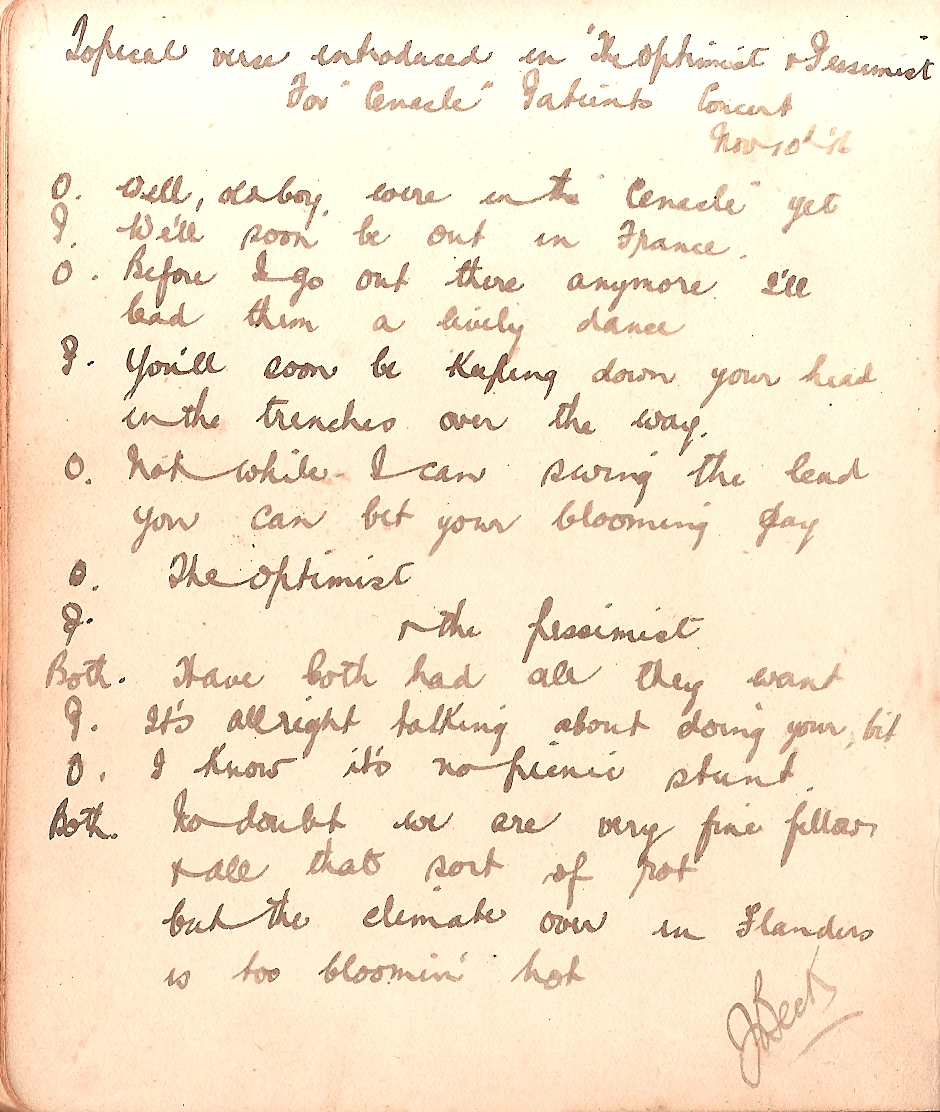 Topical verse introduced in "The Optimist & Pessimist
For "Cenacle" Patients Concert
Nov 10th '16
O. Well, old boy, we're in the "Cenacle" yet
P. We'll soon be out in France.
O. Before I go out there anymore I'll
lead them a lively dance
P. You'll soon be keeping down your head
in the trenches over the way.
O. Not while I can swing the lead
you can bet your blooming pay
O. The Optimist
P. & the pessimist
Both. Have both had all they want
P. It's allright talking about doing your bit
O. I know it's no picnic stunt.
Both. No doubt we are very fine fellows
& all that sort of rot
but the climate over in Flanders
is too bloomin' hot